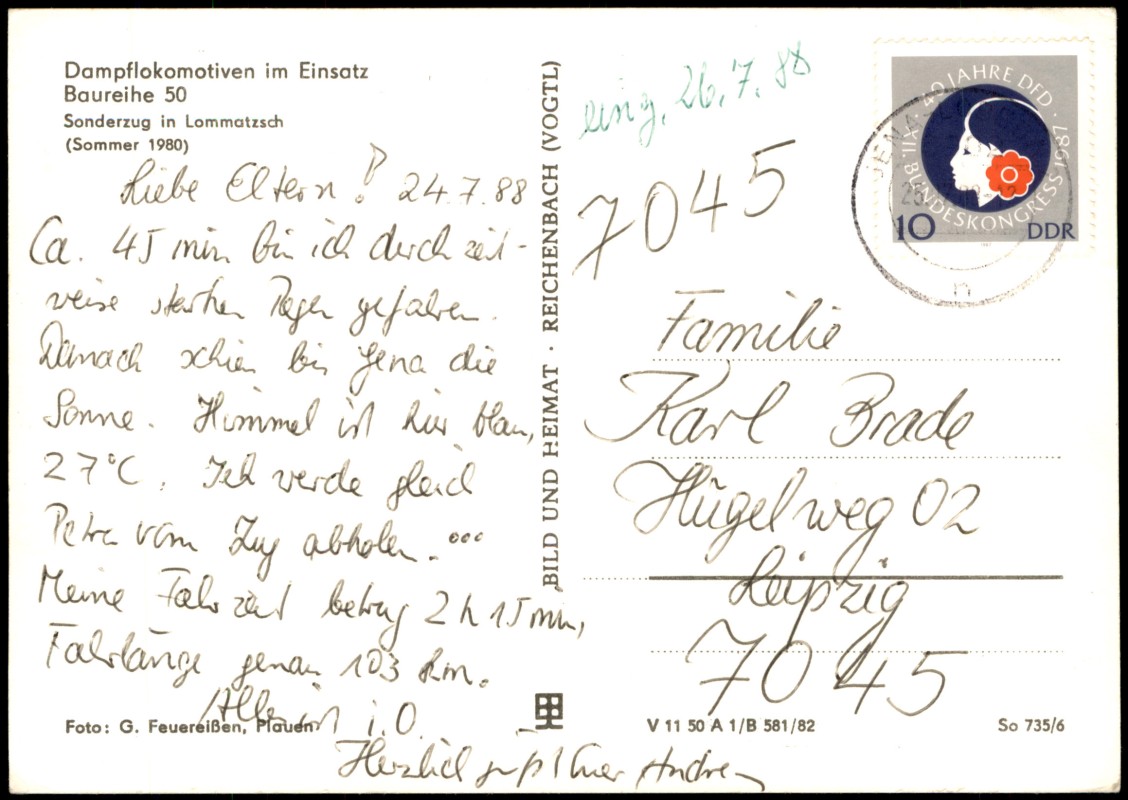 Dampflokomotiven im Einsatz
Baureihe 50
Sonderzug in Lommatzsch
(Sommer 1980)
Liebe Eltern! 24.7.88
Ca. 45 min bin ich durch zeit-
weise starken Regen gefahren.
Danach schien bis Jena die
Sonne. Himmel ist hier blau,
27°C. Ich werde gleich
Petra vom Zug abholen....
Meine Fahrzeit betrug 2 h 15 min,
Fahrlänge genau 103 km.
Alles ist i.O.
Herzlich grüßt Euer Andreas
Foto: G. Feuereißen, Plauen
BILD UND HEIMAT · REICHENBACH (VOGTL)
eing. 26.7.88
7045
40 JAHRE DFD · XII. BUNDESKONGRESS 1987
10 DDR
JENA
25
Familie
Karl Brade
Hügelweg 02
Leipzig
7045
V 11 50 A 1/B 581/82
So 735/6